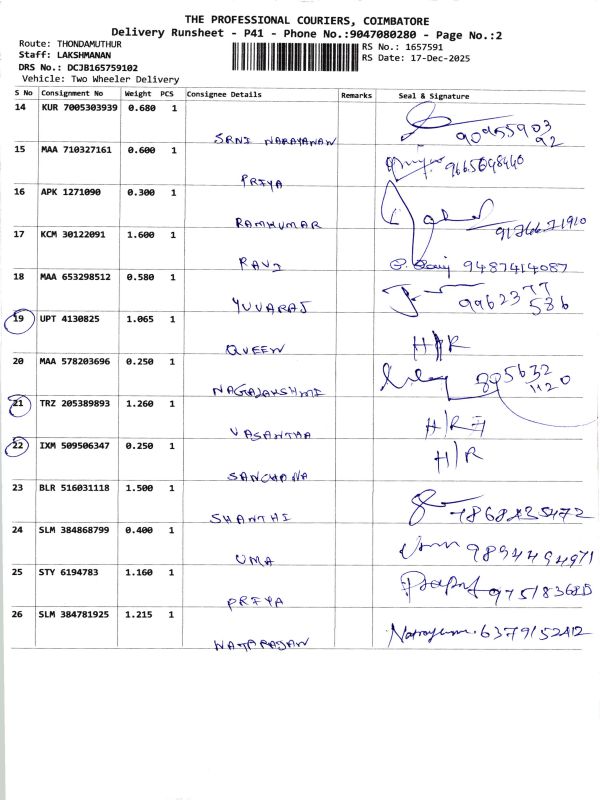 THE PROFESSIONAL COURIERS, COIMBATORE
Delivery Runsheet - P41 - Phone No.:9047080280 - Page No.:2
Route: THONDAMUTHUR
Staff: LAKSHMANAN
DRS No.: DCJB165759102
Vehicle: Two Wheeler Delivery
RS No.: 1657591
RS Date: 17-Dec-2025
S No Consignment No Weight PCS Consignee Details Remarks Seal & Signature
14 KUR 7005303939 0.680 1
SRNI NARAYANAN 9095590392
15 MAA 710327161 0.600 1
PRIYA
16 APK 1271090 0.300 1
RAMKUMAR
17 KCM 30122091 1.600 1
RAVI 9487414087
18 MAA 653298512 0.580 1
YUVARAJ 9962377586
19 UPT 4130825 1.065 1
QUEEN H/R
20 MAA 578203696 0.250 1
NAGALAKSHMI
21 TRZ 205389893 1.260 1
VASANTHA H/R
22 IXM 509506347 0.250 1
SANCHANA H/R
23 BLR 516031118 1.500 1
SHANTHI
24 SLM 384868799 0.400 1
UMA 9894494971
25 STY 6194783 1.160 1
PRIYA
26 SLM 384781925 1.215 1
NATARAJAN